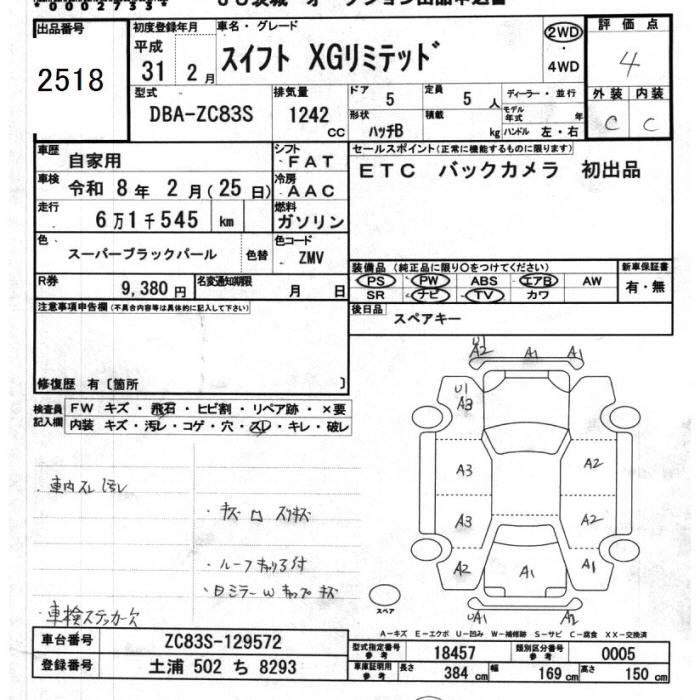 00027354
JU茨城 オークション出品申込書
出品番号
2518
初度登録年月
平成
31 2月
車名・グレード
スイフト XGリミテッド
2WD
・
4WD
評価点
4
外装 内装
C C
型式
DBA-ZC83S
排気量
1242
CC
ドア
5
定員
5 人
形状
ハッチB
積載
kg
ディーラー・並行
モデル年式 年
ハンドル 左・右
車歴
自家用
シフト
FAT
車検
令和 8年 2月(25日)
冷房
AAC
走行
6万1千545 km
燃料
ガソリン
色
スーパーブラックパール
色替
色コード
ZMV
R券
9,380円
名変通知期限
月 日
セールスポイント(正常に機能するものに限ります)
ETC バックカメラ 初出品
装備品(純正品に限り○をつけてください)
PS PW ABS エアB AW
SR ナビ TV カワ
新車保証書
有・無
後日品
スペアキー
注意事項申告欄(不具合内容等は具体的に記入して下さい)
修復歴 有〔箇所 〕
検査員記入欄
FW キズ・飛石・ヒビ割・リペア跡・×要
内装 キズ・汚レ・コゲ・穴・スレ・キレ・破レ
・車内スレ汚レ
・ルーフキャリア付
車検ステッカー欠
U1
A2 A1 A1
U1
A3
A3 A2
A3 A2
A2 A1 A2
UA1 A1
スペア
A-キズ E-エクボ U-凹み W-補修跡 S-サビ C-腐食 XX-交換済
車台番号
ZC83S-129572
登録番号
土浦 502 ち 8293
型式指定番号
参考
18457
類別区分番号
参考
0005
車庫証明用
参考
長さ 384 cm 幅 169 cm 高さ 150 cm